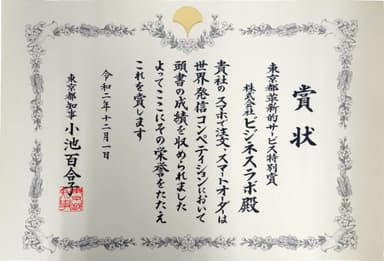 賞状
東京都革新的サービス特別賞
株式会社ビジネスラボ殿
貴社のスマホで注文、スマートオーダーは
世界発信コンペティションにおいて
頭書の成績を収められました
よってここにその栄誉をたたえ
これを賞します
令和二年十二月一日
東京都知事 小池百合子